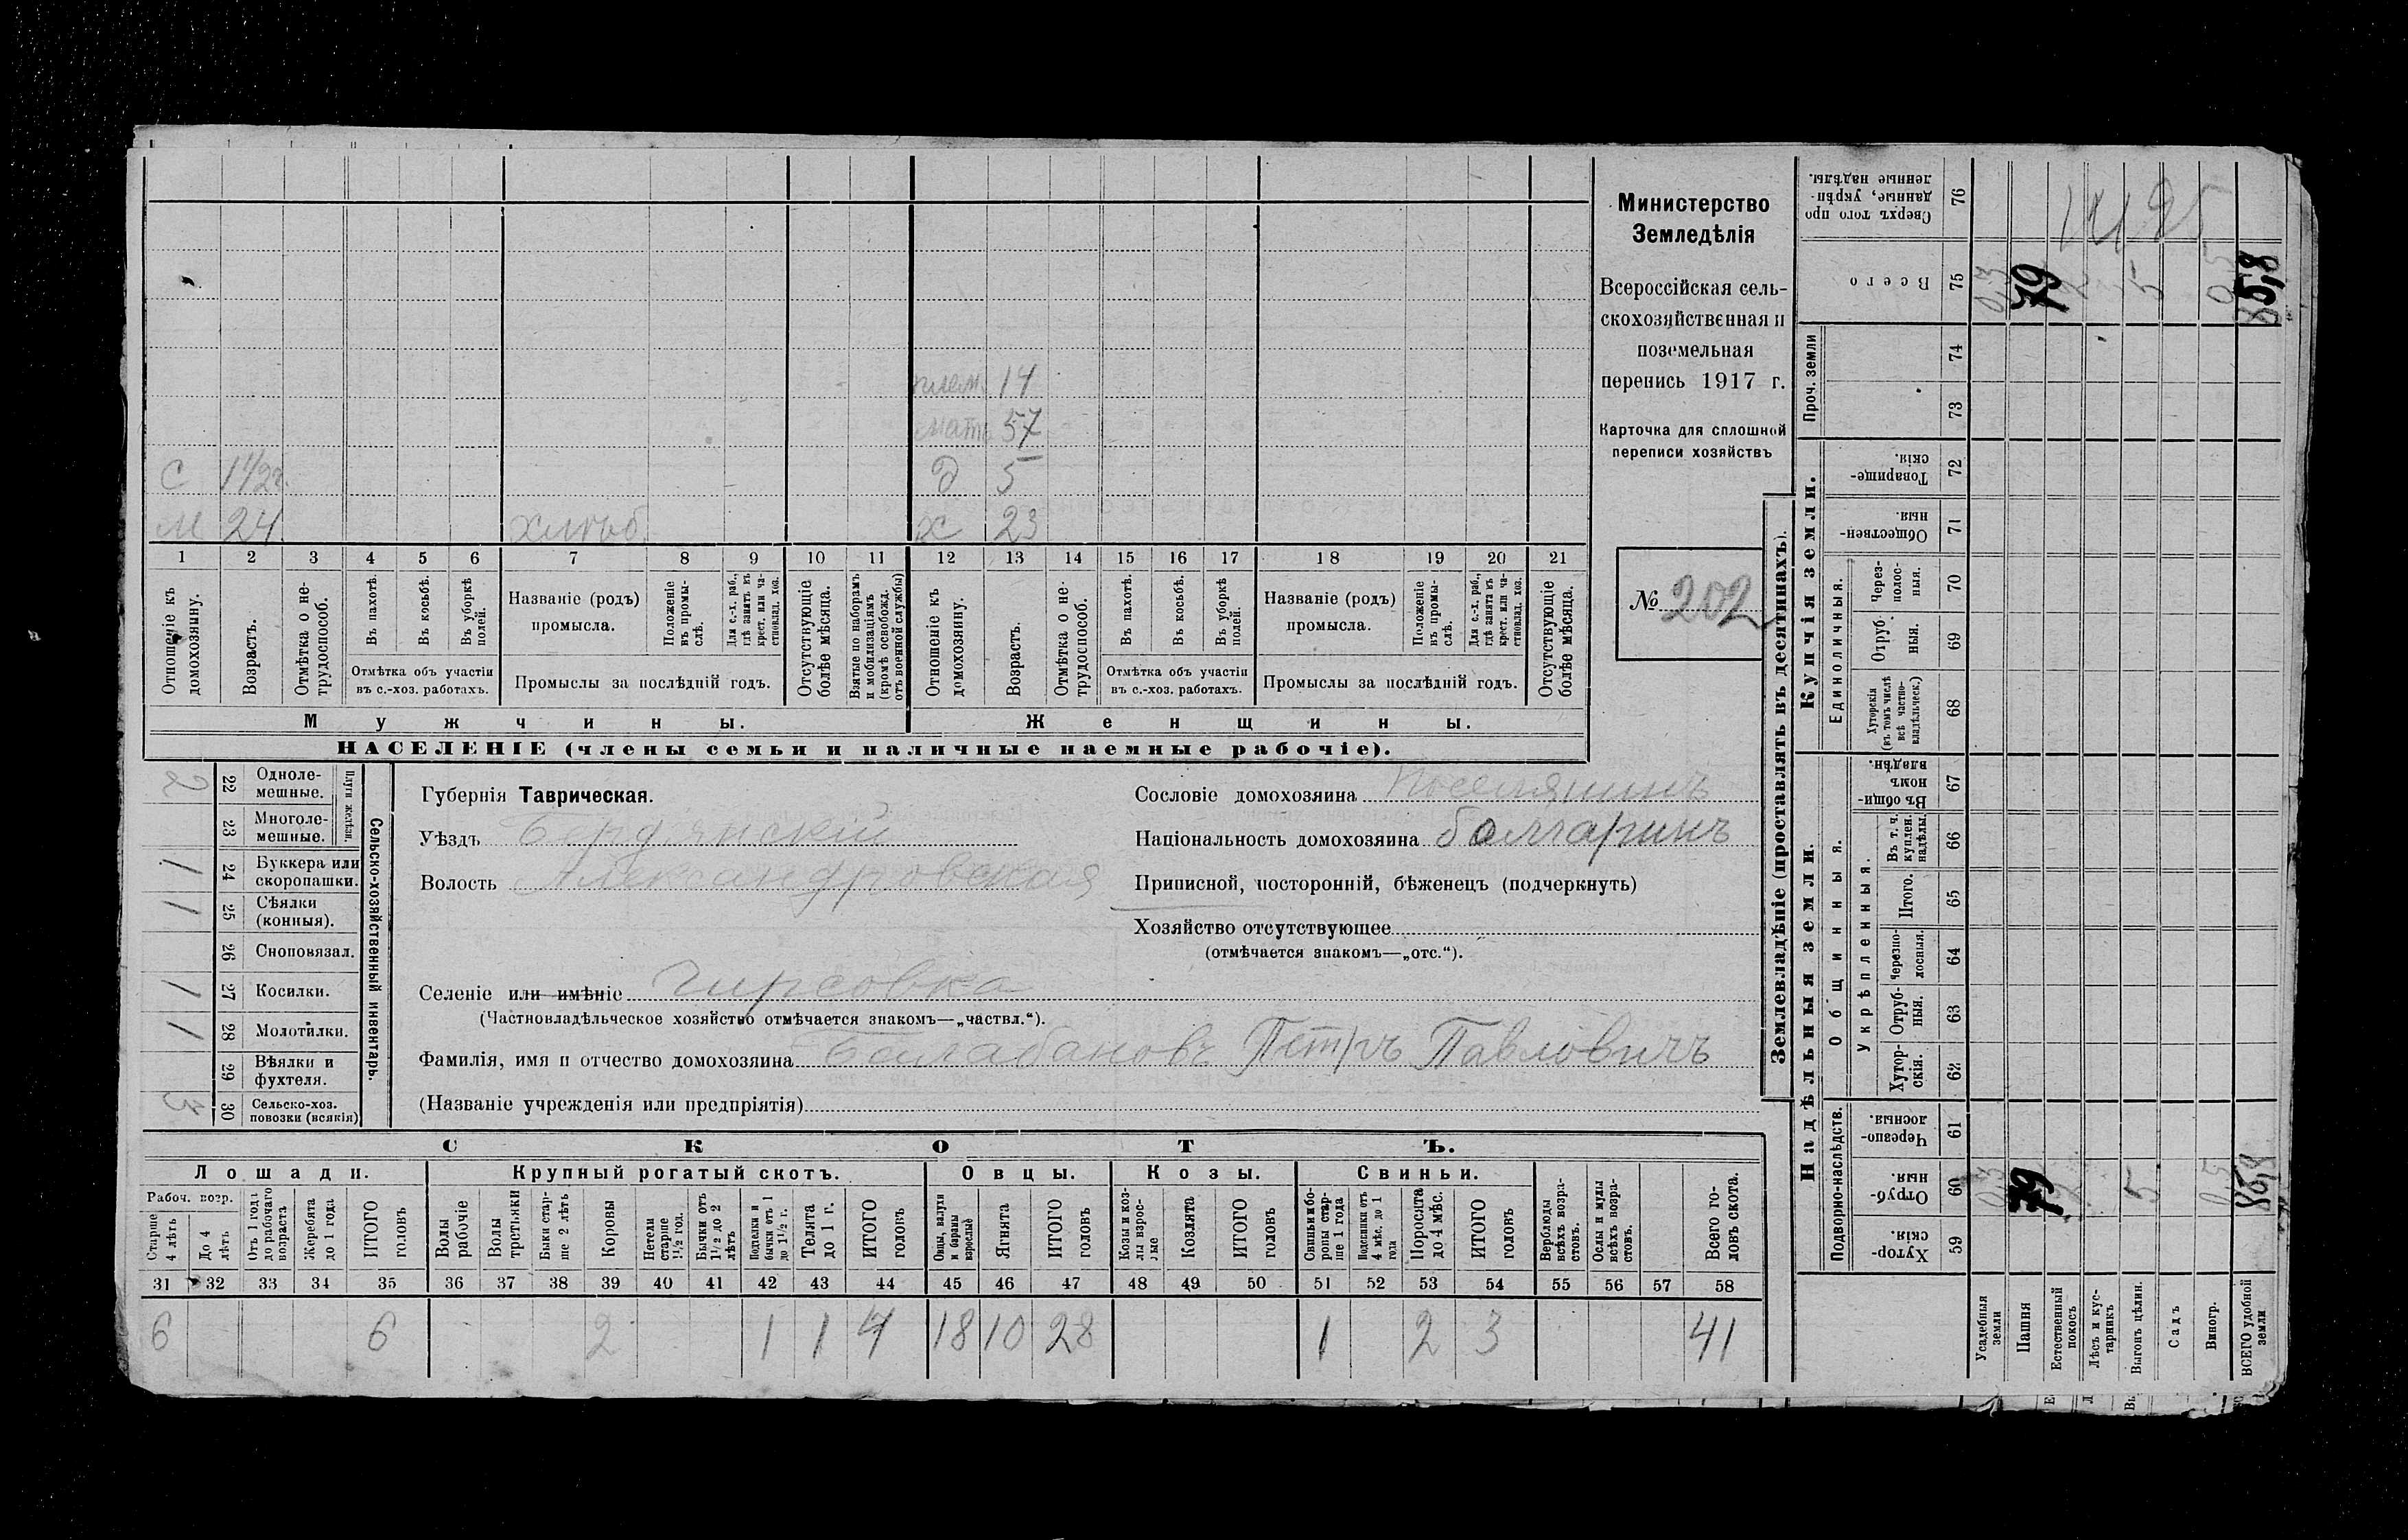 Министерство
Земледѣлія
Всероссійская сель-
скохозяйственная и
поземельная
перепись 1917 г.
Карточка для сплошной
переписи хозяйствъ
№ 202
плем. 14
мать 57
С 1 1/2 г. д 5
М 24 хлѣб. ж 23
1 2 3 4 5 6 7 8 9 10 11 12 13 14 15 16 17 18 19 20 21
Отношеніе къ домохозяину.
Возрастъ.
Отмѣтка о не-трудоспособ.
Въ пахотѣ.
Въ косьбѣ.
Въ уборкѣ полей.
Отмѣтка объ участіи
въ с.-хоз. работахъ.
Названіе (родъ)
промысла.
Положеніе въ промы-слѣ.
Для с.-х. раб., гдѣ занятъ въ крест. или ча-стновлад. хоз.
Промыслы за послѣдній годъ.
Отсутствующіе болѣе мѣсяца.
Взятые по наборамъ и мобилизаціямъ (кромѣ освобожд. отъ военной службы)
Отношеніе къ домохозяину.
Возрастъ.
Отмѣтка о не-трудоспособ.
Въ пахотѣ.
Въ косьбѣ.
Въ уборкѣ полей.
Отмѣтка объ участіи
въ с.-хоз. работахъ.
Названіе (родъ)
промысла.
Положеніе въ промы-слѣ.
Для с.-х. раб., гдѣ занята въ крест. или ча-стновлад. хоз.
Промыслы за послѣдній годъ.
Отсутствующіе болѣе мѣсяца.
Мужчины. Женщины.
НАСЕЛЕНІЕ (члены семьи и наличные наемные рабочіе).
Сельско-хозяйственный инвентарь.
Плуги желѣзн.
2 22 Одноле-мешные.
23 Многоле-мешные.
1 24 Буккера или скоропашки.
1 25 Сѣялки (конныя).
26 Сноповязал.
1 27 Косилки.
1 28 Молотилки.
29 Вѣялки и фухтеля.
3 30 Сельско-хоз. повозки (всякія)
Губернія Таврическая.
Уѣздъ Бердянскій
Волость Александровская
Селеніе или имѣніе Гирсовка
(Частновладѣльческое хозяйство отмѣчается знакомъ—„частвл.“).
Фамилія, имя и отчество домохозяина Балабановъ Петръ Павловичъ
(Названіе учрежденія или предпріятія)
Сословіе домохозяина поселянинъ
Національность домохозяина болгаринъ
Приписной, посторонній, бѣженецъ (подчеркнуть)
Хозяйство отсутствующее
(отмѣчается знакомъ—„отс.“).
СКОТЪ.
Лошади. Крупный рогатый скотъ. Овцы. Козы. Свиньи.
Рабоч. возр.
Старше 4 лѣтъ
До 4 лѣтъ
Отъ 1 года до рабочаго возраста
Жеребята до 1 года
ИТОГО головъ
Волы рабочіе
Волы третьяки
Быки стар-ше 2 лѣтъ
Коровы
Нетели старше 1 1/2 год.
Бычки отъ 1 1/2 до 2 лѣтъ
Подтелки и бычки отъ 1 до 1 1/2 г.
Телята до 1 г.
ИТОГО головъ
Овцы, валухи и бараны взрослые
Ягнята
ИТОГО головъ
Козы и коз-лы взрос-лые
Козлята
ИТОГО головъ
Свиньи и бо-ровы стар-ше 1 года
Подсвинки отъ 4 мѣс. до 1 года
Поросята до 4 мѣс.
ИТОГО головъ
Верблюды всѣхъ возра-стовъ.
Ослы и мулы всѣхъ возра-стовъ.
Всего го-ловъ скота.
31 32 33 34 35 36 37 38 39 40 41 42 43 44 45 46 47 48 49 50 51 52 53 54 55 56 57 58
6 6 2 1 1 4 18 10 28 1 2 3 41
Землевладѣніе (проставлять въ десятинахъ).
Надѣльныя земли. Купчія земли.
Подворно-наслѣдств.
Общинныя.
Укрѣпленныя.
Единоличныя.
Проч. земли
Хутор-скія. 59
Отруб-ныя. 60
Черезпо-лосныя. 61
Хутор-скія. 62
Отруб-ныя. 63
Черезпо-лосныя. 64
Итого. 65
Въ т. ч. куплен. надѣлы. 66
Въ общи-номъ владѣн. 67
Хуторскія (въ томъ числѣ всѣ частно-владѣльческ.) 68
Отруб-ныя. 69
Через-полос-ныя. 70
Обществен-ныя. 71
Товарище-скія. 72
73
74
Всего 75
Сверхъ того про-данные, укрѣп-ленные надѣлы. 76
Усадебныя земли 0,3 0,3
Пашня 79 79
Естественный покосъ
Лѣсъ и кус-тарникъ
Выгонъ цѣлин. 5 5
Садъ
Виногр. 0,5 0,5
ВСЕГО удобной земли 85,8 85,8